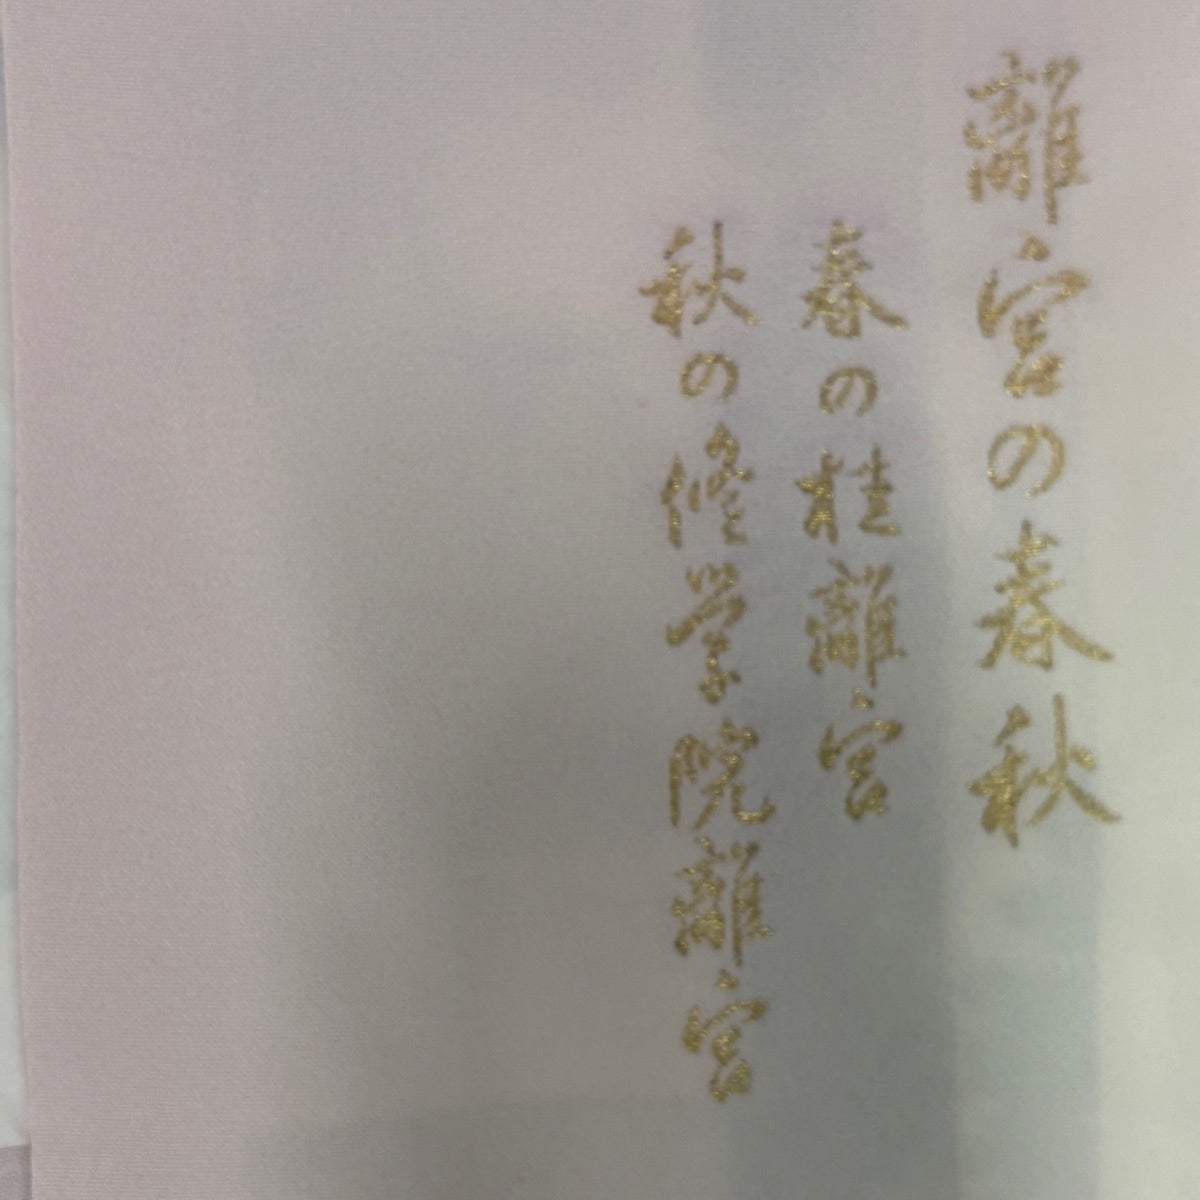 離宮の春秋
春の桂離宮
秋の修学院離宮